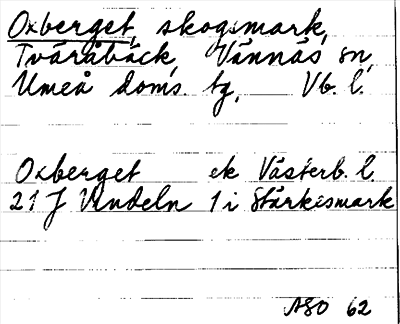 Oxberget, skogsmark,
Tväråbäck, Vännäs sn,
Umeå doms. tg, Vb. l.
Oxberget ek Västerb. l.
21 J Vindeln 1 i Starkesmark
ASO 62